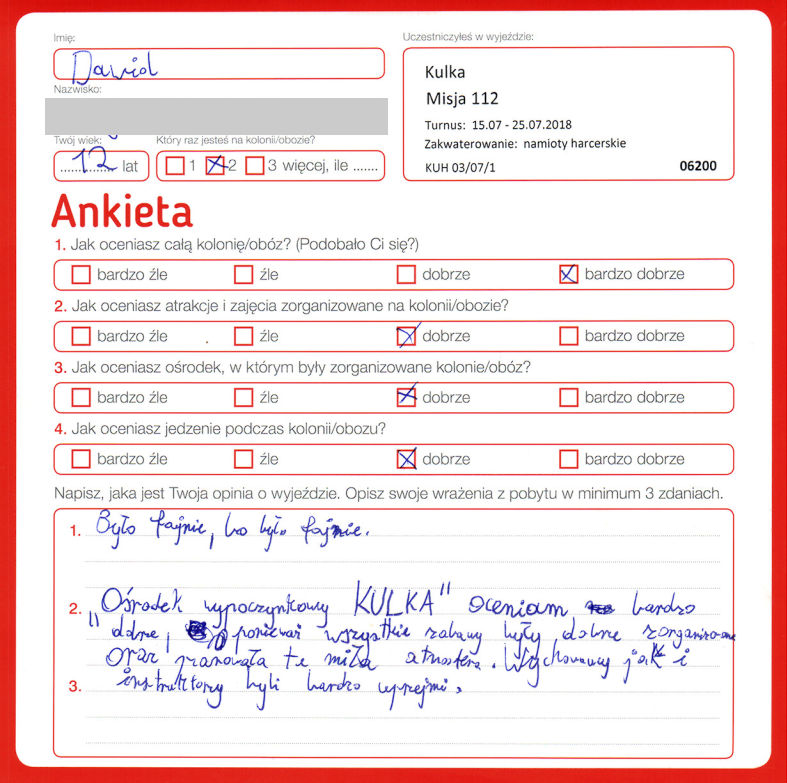 Imię:
Dawid
Nazwisko:
Twój wiek:
12 lat
Który raz jesteś na kolonii/obozie?
1 2 3 więcej, ile .......
Uczestniczyłeś w wyjeździe:
Kulka
Misja 112
Turnus: 15.07 - 25.07.2018
Zakwaterowanie: namioty harcerskie
KUH 03/07/1 06200
Ankieta
1. Jak oceniasz całą kolonię/obóz? (Podobało Ci się?)
bardzo źle źle dobrze bardzo dobrze
2. Jak oceniasz atrakcje i zajęcia zorganizowane na kolonii/obozie?
bardzo źle źle dobrze bardzo dobrze
3. Jak oceniasz ośrodek, w którym były zorganizowane kolonie/obóz?
bardzo źle źle dobrze bardzo dobrze
4. Jak oceniasz jedzenie podczas kolonii/obozu?
bardzo źle źle dobrze bardzo dobrze
Napisz, jaka jest Twoja opinia o wyjeździe. Opisz swoje wrażenia z pobytu w minimum 3 zdaniach.
1. Było fajnie, bo było fajnie.
2. Ośrodek wypoczynkowy KULKA" oceniam bardzo
" dobrze, ponieważ wszystkie zabawy były dobrze zorganizowane
oraz panowała tu miła atmosfera. Wychowawcy jak i
3. instruktorzy byli bardzo uprzejmi.